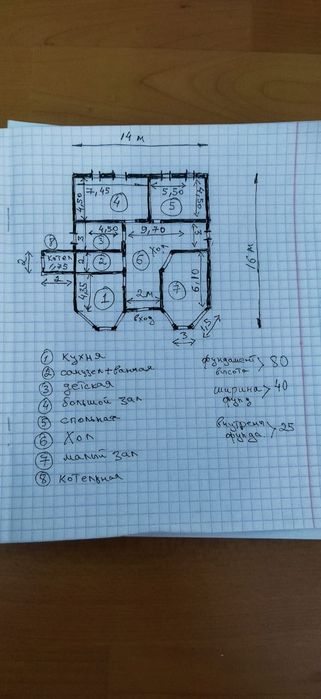 14 м
7,45
5,50
4,50
4
5
4,50
8
4,50
9,70
3
3
3
котел
1,75
2
2
2
6
хол
16 м
4,35
1
2 м
7
6,10
вход
3
1,5
① кухня
② санузел+ванная
③ детская
④ большой зал
⑤ спольная
⑥ Хол
⑦ малый зал
⑧ котельная
фундамент
высота > 80
ширина
фунд > 40
внутрень
фунда > 25